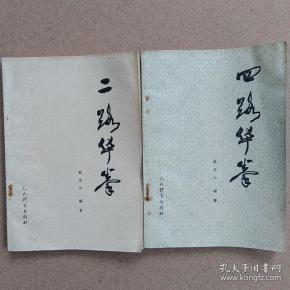 二路华拳
编著
人民体育出版社
四路华拳
编著
人民体育出版社
孔夫子旧书网